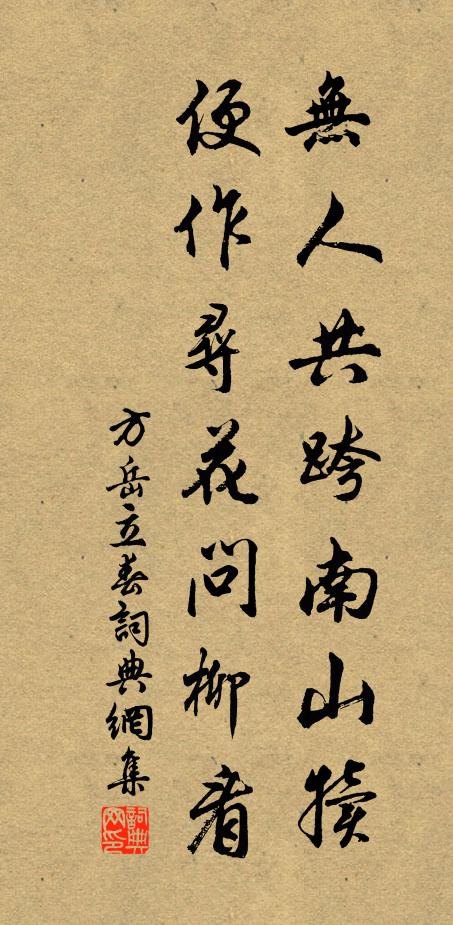 無人共跨南山犢
便作尋花問柳看
方岳立春詞典網集
詞典網印